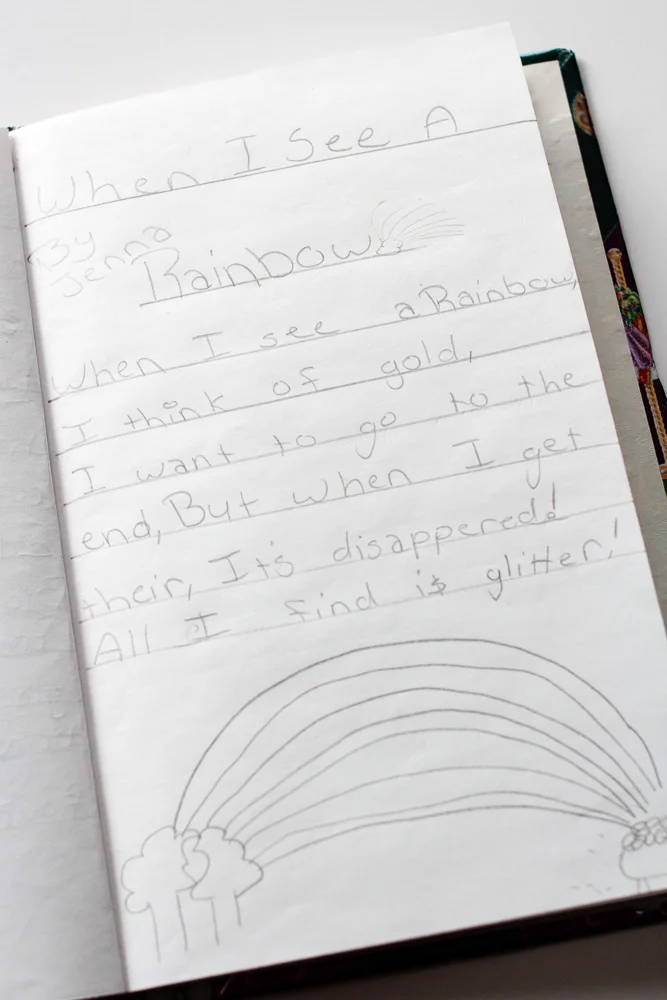 When I See A
By
Jenna
Rainbow
When I see a Rainbow,
I think of gold,
I want to go to the
end, But when I get
their, It's disappered!
All I find is glitter!